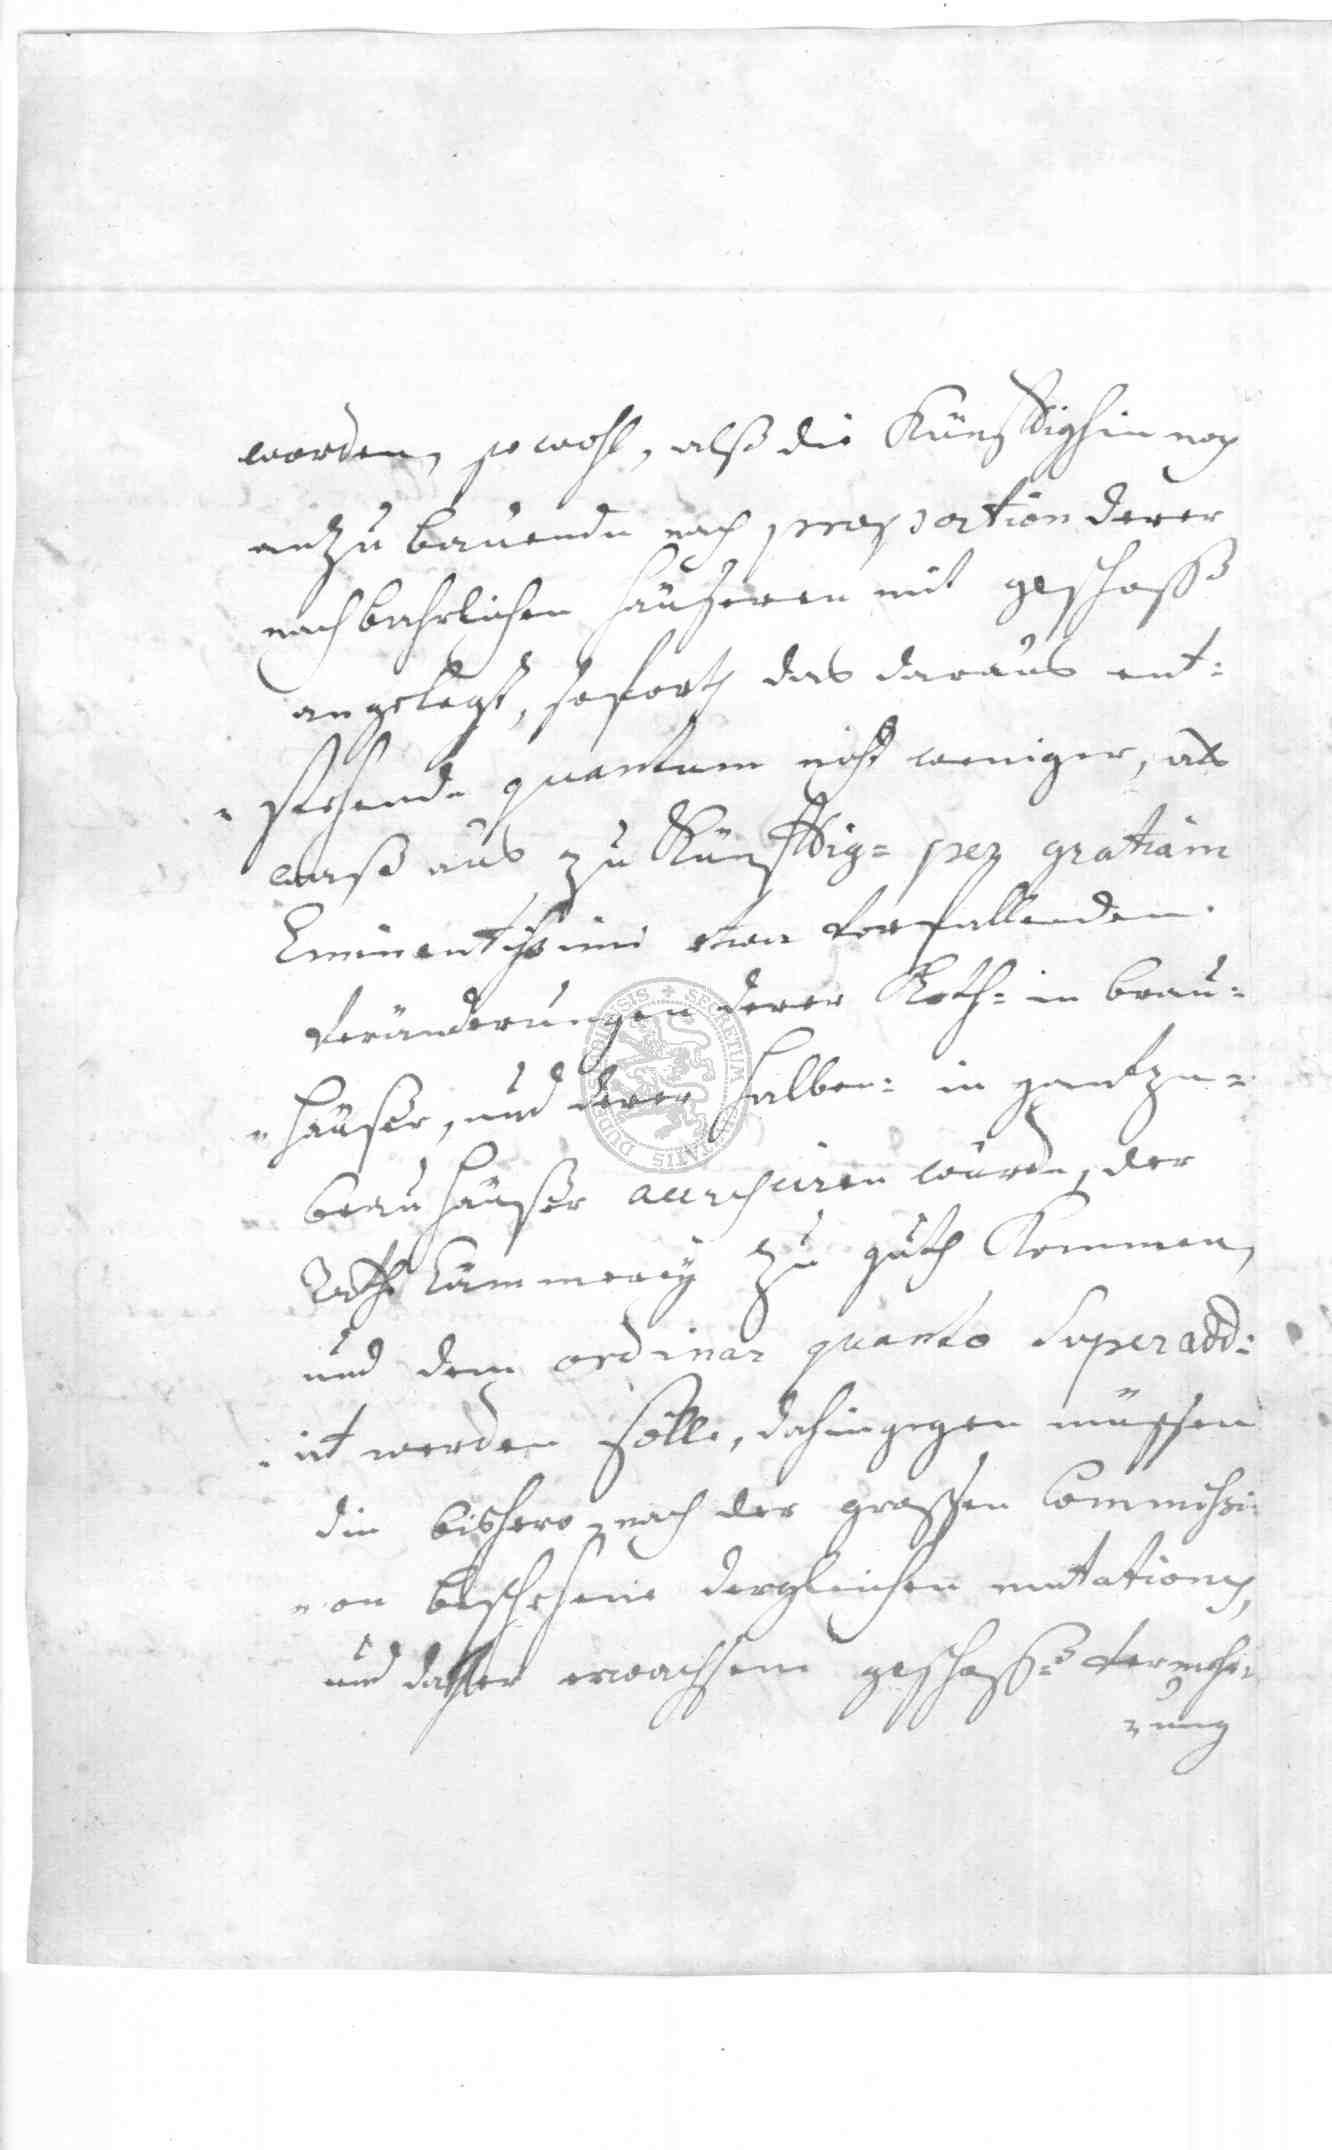 worden, sowohl, alß die Künfftighin noch
anzubauende nach proportion derer
nachbahrlichen häußeren mit geschoss
angelegt, soforth das daraus ent=
=stehende quantum nicht weniger, als
waß aus zu Künfftig= per gratiam
Eminentissimi etwa vorfallenden
Veränderungen derer Koth= in brau=
=häußer, und derer halben= in gantze=
brauhäußer accresciren würde, der
Raths Cämmerey zu guth Kommen,
und dem ordinar quanto superadd=
=irt werden solle, dahingegen müssen
die bishero nach der grossen Commissi=
=on beschehene dergleichen mutationes,
und daher erwachsene geschoss= Vermehr=
=ung
SECRETUM CIVITATIS DUDERSTADIENSIS